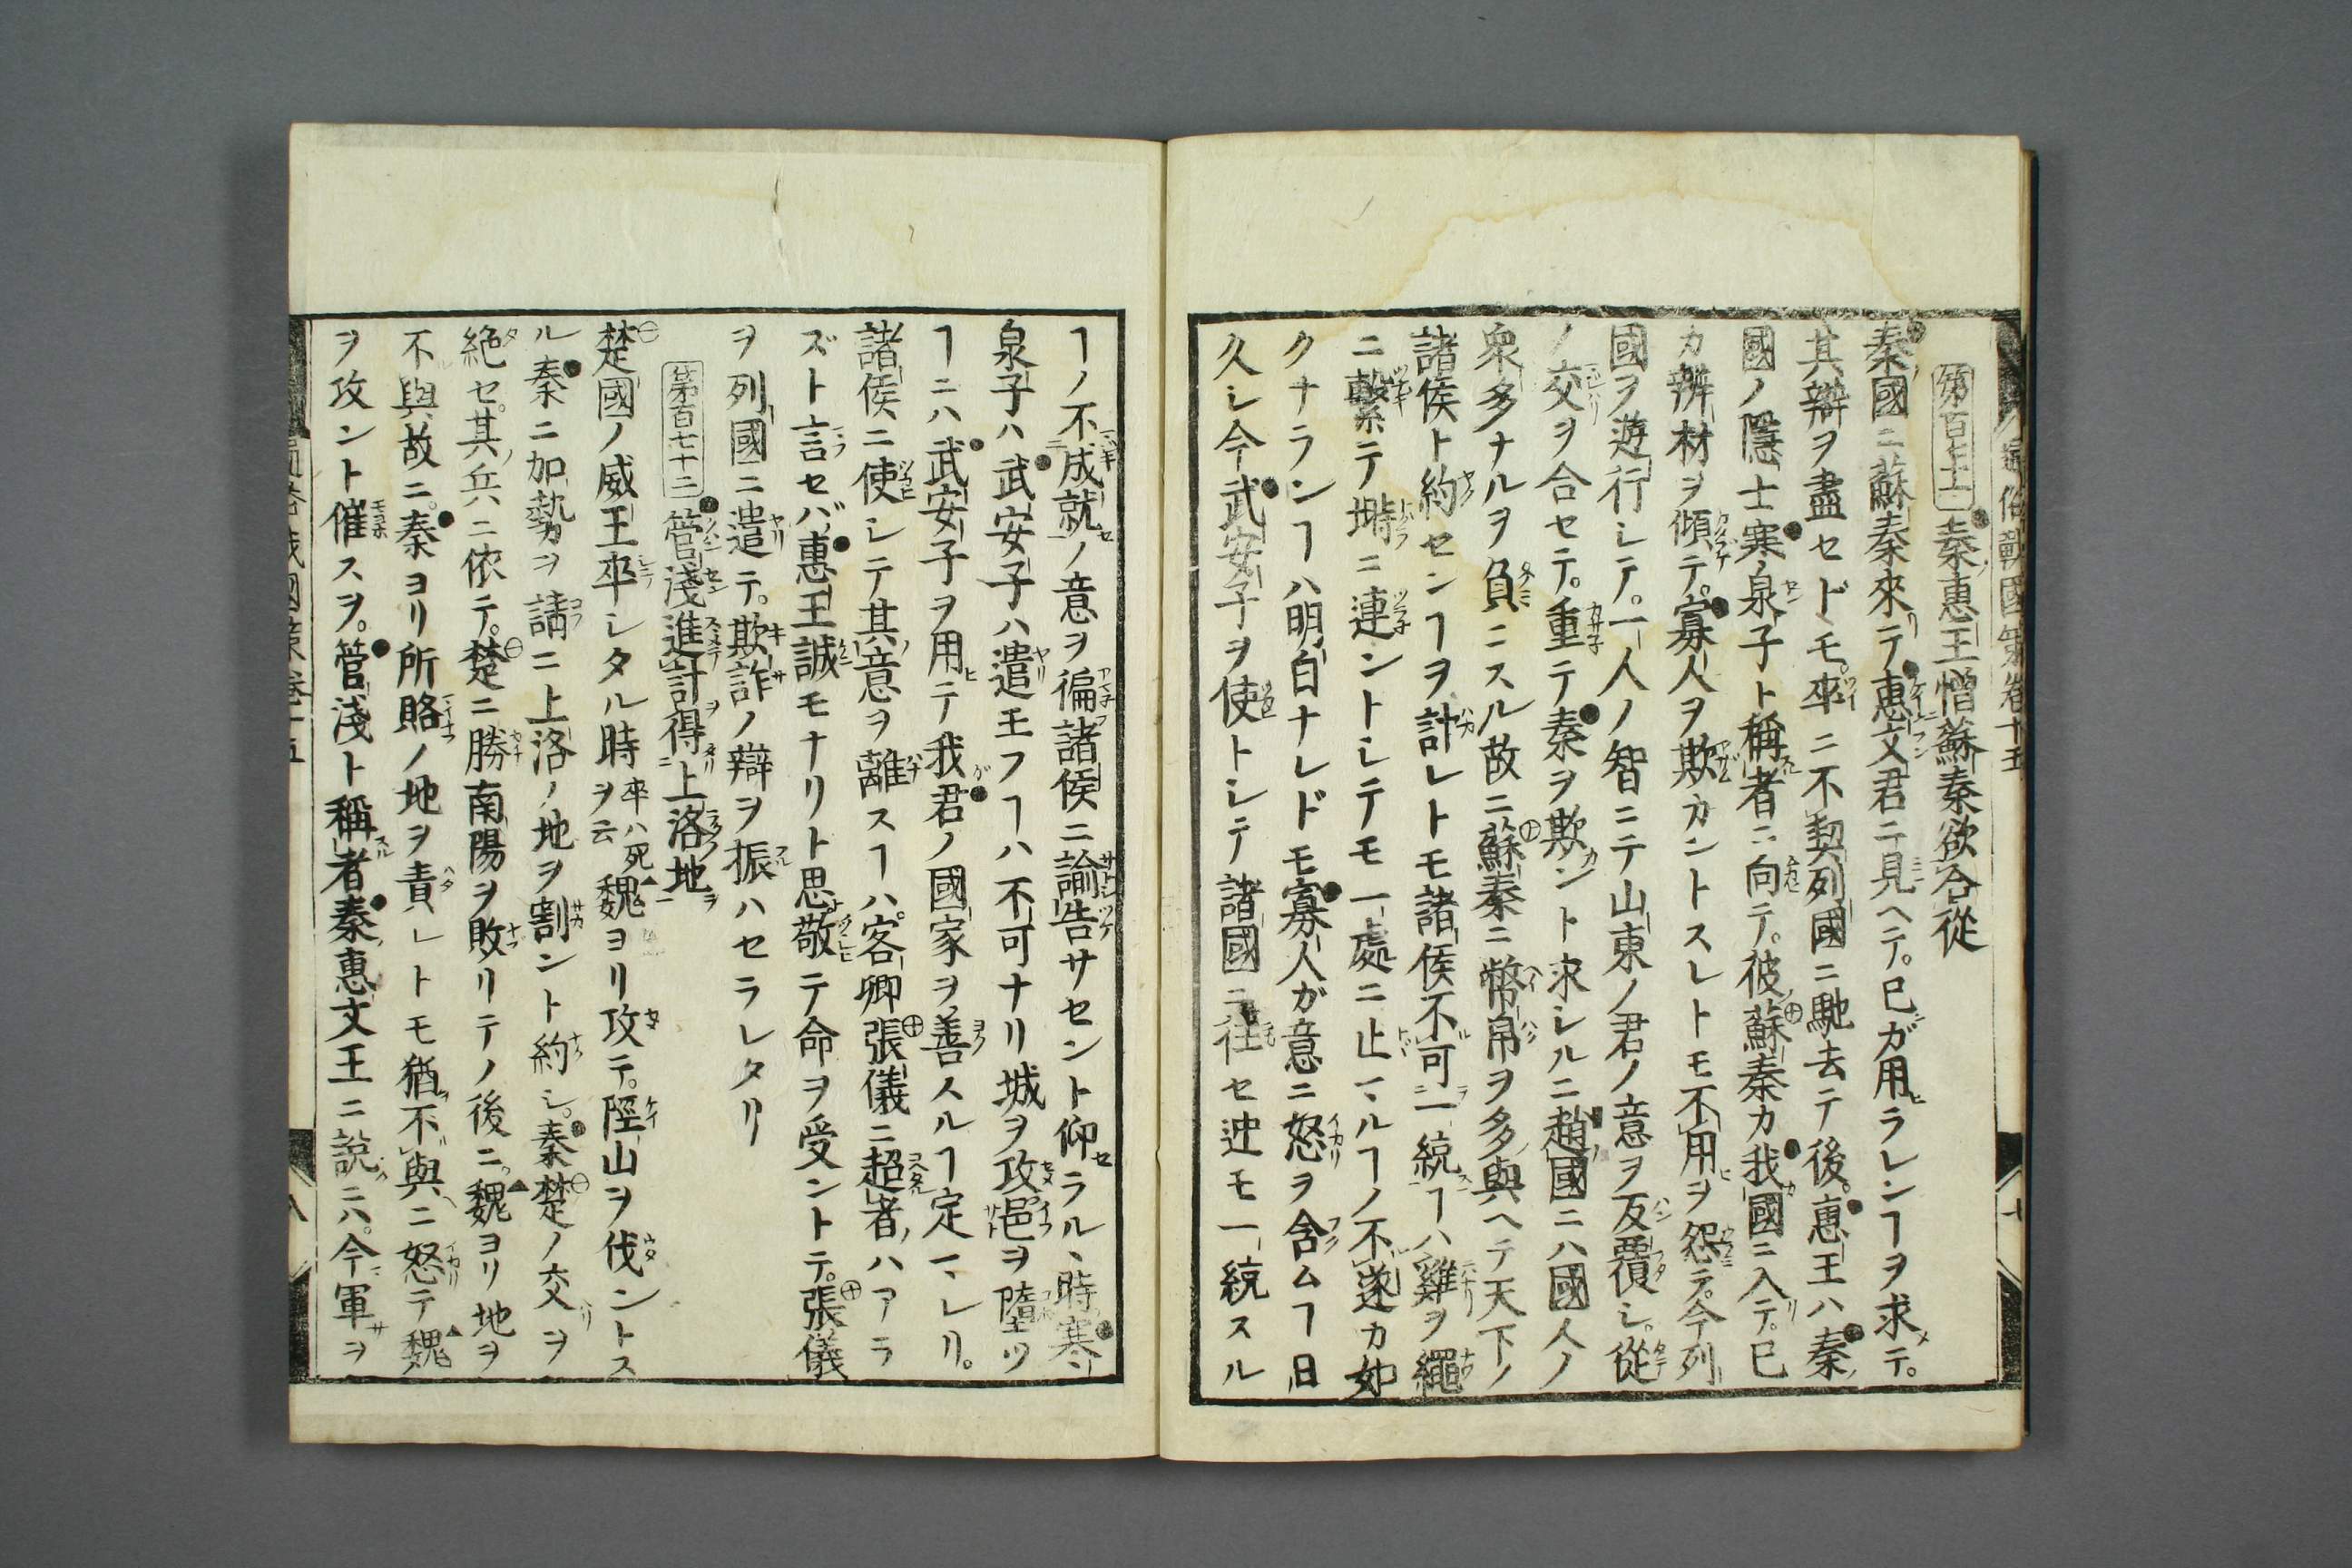 通俗戰國策卷十五
第百七十一 秦惠王憎蘇秦欲合從
秦國ニ蘇秦來テ惠文君ニ見ヘテ。已ガ用ラレンヿヲ求テ。
其辯ヲ盡セドモ。卒ニ不契列國ニ馳去テ後。惠王ハ秦
國ノ隱士寒泉子ト稱者ニ向テ。彼蘇秦カ我國ニ入テ。已
カ辨材ヲ傾テ。寡人ヲ欺カントスレトモ不用ヲ怨テ。今列
國ヲ遊行シテ。一人ノ智ニテ山東ノ君ノ意ヲ反覆シ。從
ノ交ヲ合セテ。重テ秦ヲ欺ント求シルニ趙國ニハ國人ノ
衆多ナルヲ負ニスル故ニ蘇秦ニ幣帛ヲ多與ヘテ天下ノ
諸侯ト約センヿヲ計レトモ諸侯不可一統ヿハ雞ヲ繩
ニ繫テ塒ニ連ントシテモ一處ニ止マルヿノ不遂カ如
クナランヿハ明白ナレドモ寡人ガ意ニ怒ヲ含ムヿ日
久シ今武安子ヲ使トシテ諸國ニ往セ迚モ一統スル
七
ヿノ不成就ノ意ヲ徧諸侯ニ諭告サセント仰ラルヽ時寒
泉子ハ武安子ハ遣王フヿハ不可ナリ城ヲ攻邑ヲ墮ツ
ヿニハ武安子ヲ用テ我君ノ國家ヲ善スルヿ定マレリ。
諸侯ニ使シテ其意ヲ離スヿハ。客卿張儀ニ超者ハアラ
ズト言セバ惠王誠モナリト思敬テ命ヲ受ントテ。張儀
ヲ列國ニ遣テ。欺詐ノ辯ヲ振ハセラレタリ
第百七十二 管淺進計得上洛地
楚國ノ威王卒シタル時ヲ云卒ハ死魏ヨリ攻テ。陘山ヲ伐ントス
ル秦ニ加勢ヲ請ニ上洛ノ地ヲ割ント約シ。秦楚ノ交ヲ
絶セ。其兵ニ依テ。楚ニ勝南陽ヲ敗リテノ後ニ魏ヨリ地ヲ
不與故ニ。秦ヨリ所賂ノ地ヲ責レトモ猶不與ニ怒テ魏
ヲ攻ント催スヲ。管淺ト稱者秦惠文王ニ說ニハ。今軍ヲ
八